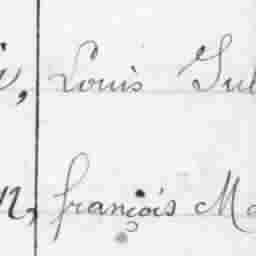 , Louis Jul
n, françois Ma